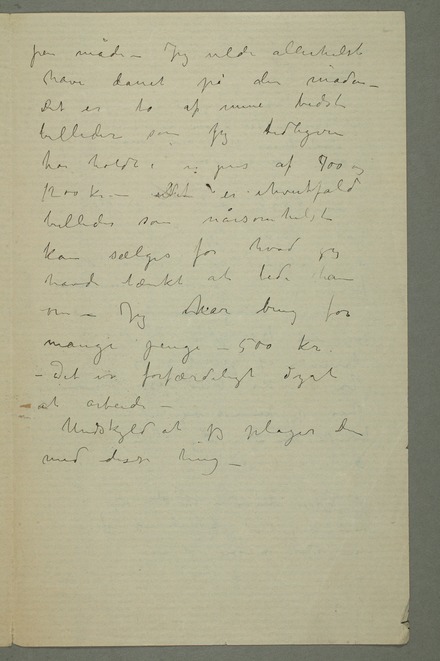 paa måde – Jeg vilde allerhelst
have det på den måden –
det er to af mine bedste
billeder som jeg
har holdt i pris af 800 og
1200 Kr. – det er ihvertfald
billeder som nårsomhelst
kan sælges for hvad jeg
havde tænkt at
om – Jeg har brug for
mange penge – 500 kr.
– det er forfærdeligt dyrt
at arbeide –
Undskyld at jeg plager dem
med disse ting –